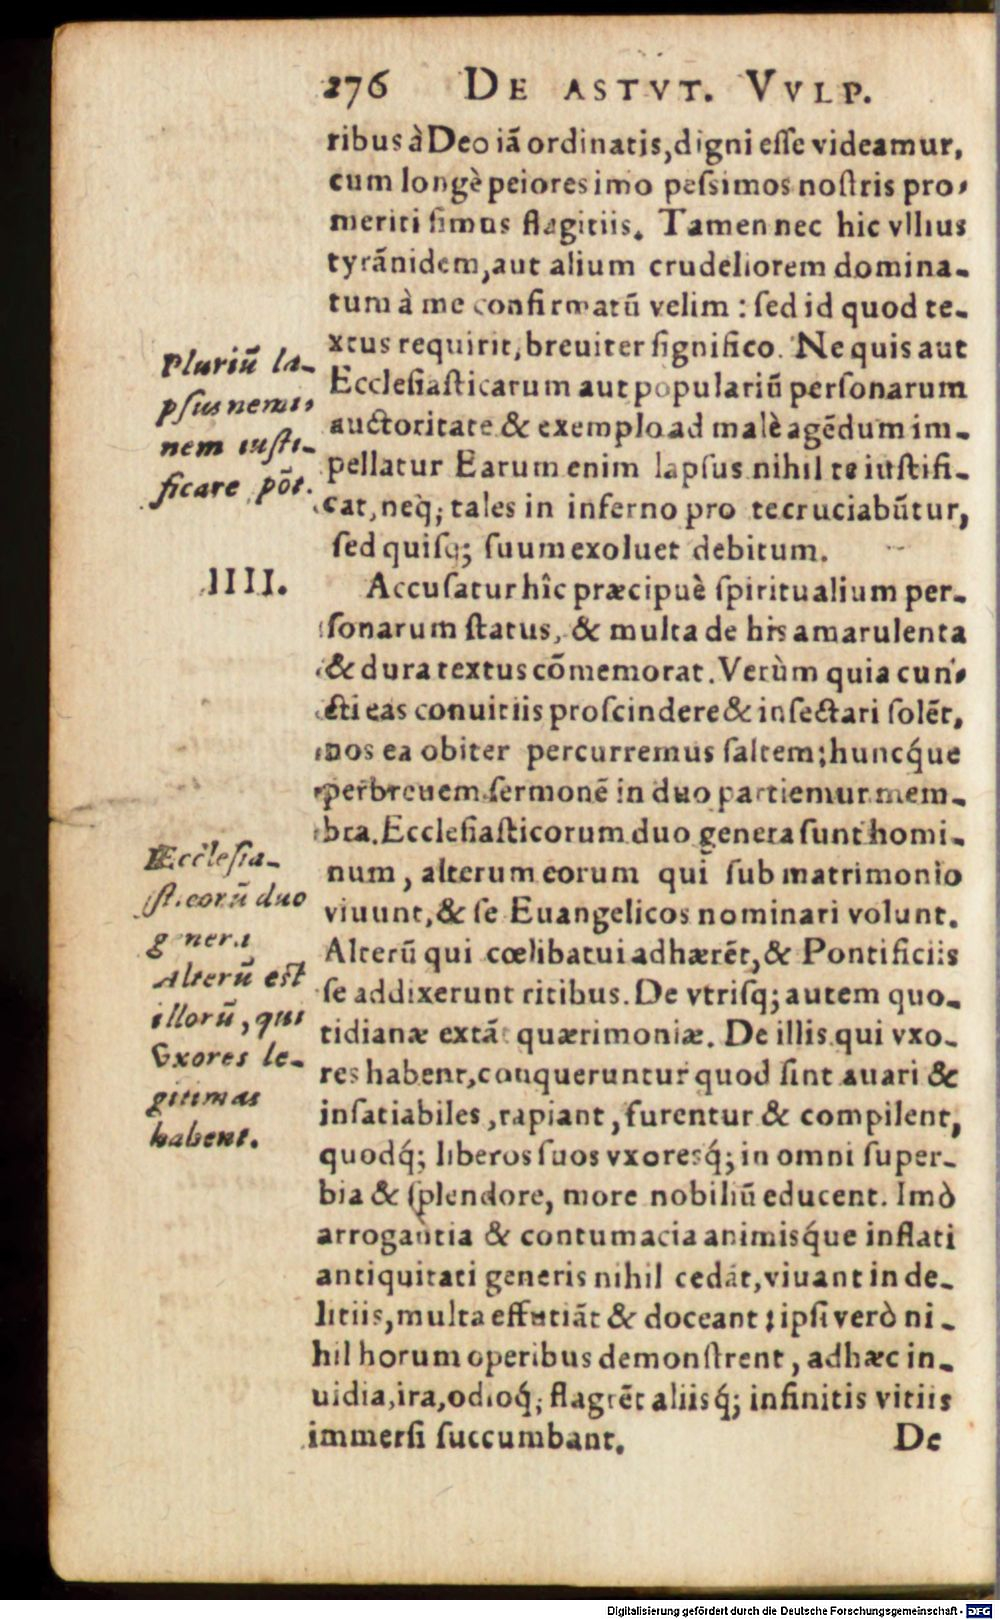 276 DE ASTVT. VVLP.
ribus à Deo iã ordinatis, digni eſſe videamur,
cum longè peiores imo peſsimos noſtris pro-
meriti ſimus flagitiis. Tamen nec hic vllius
tyrãnidem, aut alium crudeliorem domina-
tum à me confirmatũ velim : ſed id quod te-
xtus requirit, breuiter ſignifico. Ne quis aut
Eccleſiaſticarum aut populariũ perſonarum
auctoritate & exemplo ad malè agẽdum im-
pellatur Earum enim lapſus nihil te iuſtifi-
cat, neq; tales in inferno pro te cruciabũtur,
ſed quiſq; ſuum exoluet debitum.
Pluriũ la-
pſus nemi-
nem iuſti-
ficare põt.
IIII.
Accuſatur hîc præcipuè ſpiritualium per-
ſonarum ſtatus, & multa de his amarulenta
& dura textus cõmemorat. Verùm quia cun-
cti eas conuitiis proſcindere & inſectari ſolẽt,
nos ea obiter percurremus ſaltem; huncq́ue
perbreuem ſermonẽ in duo partiemur mem-
bra. Eccleſiaſticorum duo genera ſunt homi-
num, alterum eorum qui ſub matrimonio
viuunt, & ſe Euangelicos nominari volunt.
Alterũ qui cœlibatui adhærẽt, & Pontificiis
ſe addixerunt ritibus. De vtriſq; autem quo-
tidianæ extãt quærimoniæ. De illis qui vxo-
res habent, conqueruntur quod ſint auari &
inſatiabiles, rapiant, furentur & compilent,
quodq́; liberos ſuos vxoresq́; in omni ſuper-
bia & ſplendore, more nobiliũ educent. Imò
arrogantia & contumacia animisq́ue inflati
antiquitati generis nihil cedãt, viuant in de-
litiis, multa effutiãt & doceant; ipſi verò ni-
hil horum operibus demonſtrent, adhæc in-
uidia, ira, odioq́; flagrẽt aliisq́; infinitis vitiis
immerſi ſuccumbant.
Eccleſia-
ſticorũ duo
genera
Alterũ eſt
illorũ, qui
vxores le-
gitimas
habent.
De
Digitalisierung gefördert durch die Deutsche Forschungsgemeinschaft - DFG